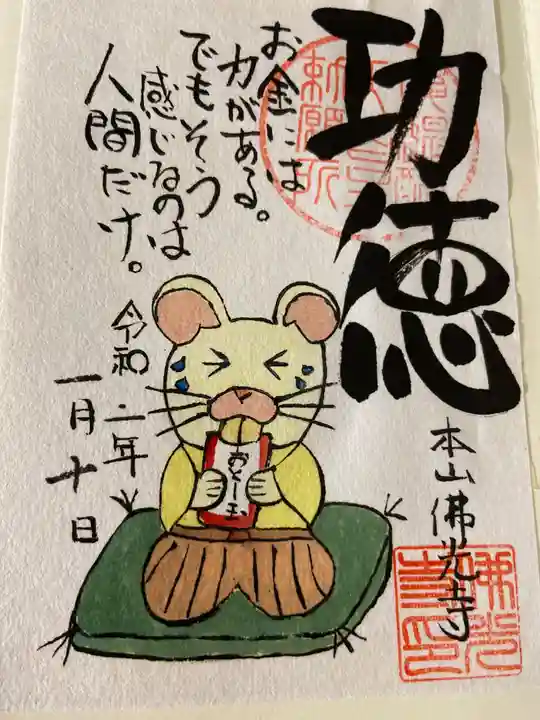 功徳
お金には
力がある。
でもそう
感じるのは
人間だけ。
令和二年
一月十日
おとし玉
本山佛光寺
勅願所